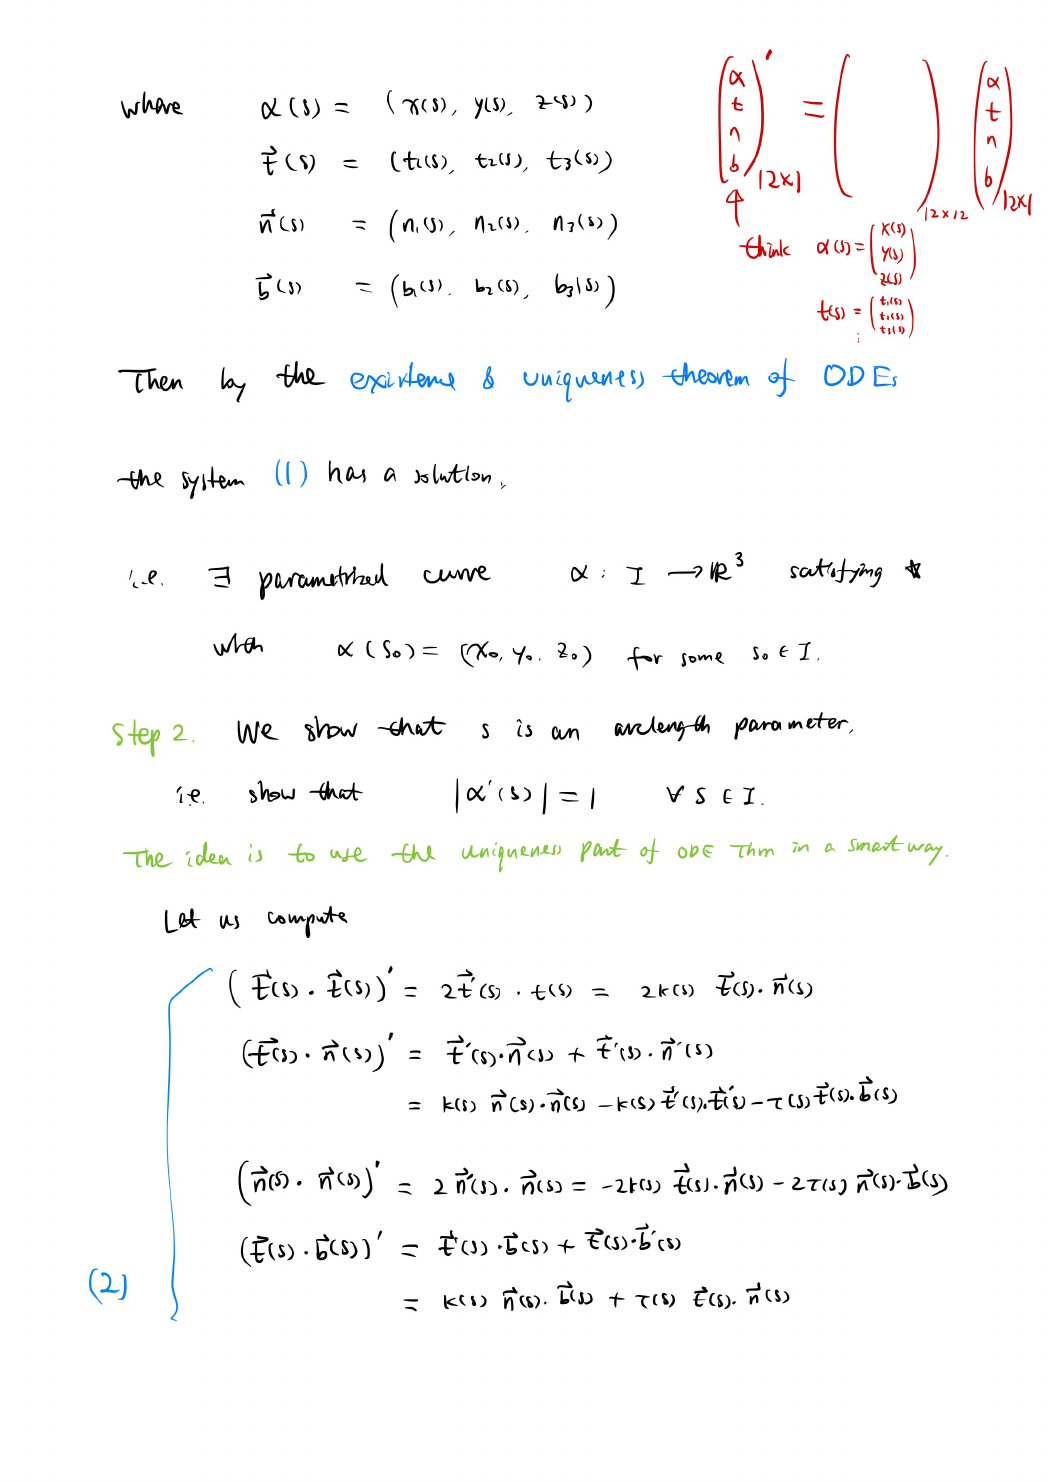 where α(s) = (x(s), y(s), z(s))
t⃗(s) = (t₁(s), t₂(s), t₃(s))
n⃗(s) = (n₁(s), n₂(s), n₃(s))
b⃗(s) = (b₁(s), b₂(s), b₃(s))
(α t n b)′ 12×1 = ( ) 12×12 (α t n b) 12×1
think α(s) = (x(s) y(s) z(s))
t(s) = (t₁(s) t₂(s) t₃(s))
⋮
Then by the existence & uniqueness theorem of ODEs
the system (1) has a solution.
i.e. ∃ parametrized curve α : I → ℝ³ satisfying ☆
with α(s₀) = (x₀, y₀, z₀) for some s₀ ∈ I.
Step 2. We show that s is an arclength parameter,
i.e. show that |α′(s)| = 1 ∀ s ∈ I.
The idea is to use the uniqueness part of ODE Thm in a smart way.
Let us compute
(t⃗(s) · t⃗(s))′ = 2t⃗′(s) · t(s) = 2k(s) t⃗(s) · n⃗(s)
(t⃗(s) · n⃗(s))′ = t⃗′(s) · n⃗(s) + t⃗(s) · n⃗′(s)
= k(s) n⃗(s) · n⃗(s) − k(s) t⃗(s) · t⃗(s) − τ(s) t⃗(s) · b⃗(s)
(n⃗(s) · n⃗(s))′ = 2 n⃗′(s) · n⃗(s) = −2k(s) t⃗(s) · n⃗(s) − 2τ(s) n⃗(s) · b⃗(s)
(t⃗(s) · b⃗(s))′ = t⃗′(s) · b⃗(s) + t⃗(s) · b⃗′(s)
(2)
= k(s) n⃗(s) · b⃗(s) + τ(s) t⃗(s) · n⃗(s)